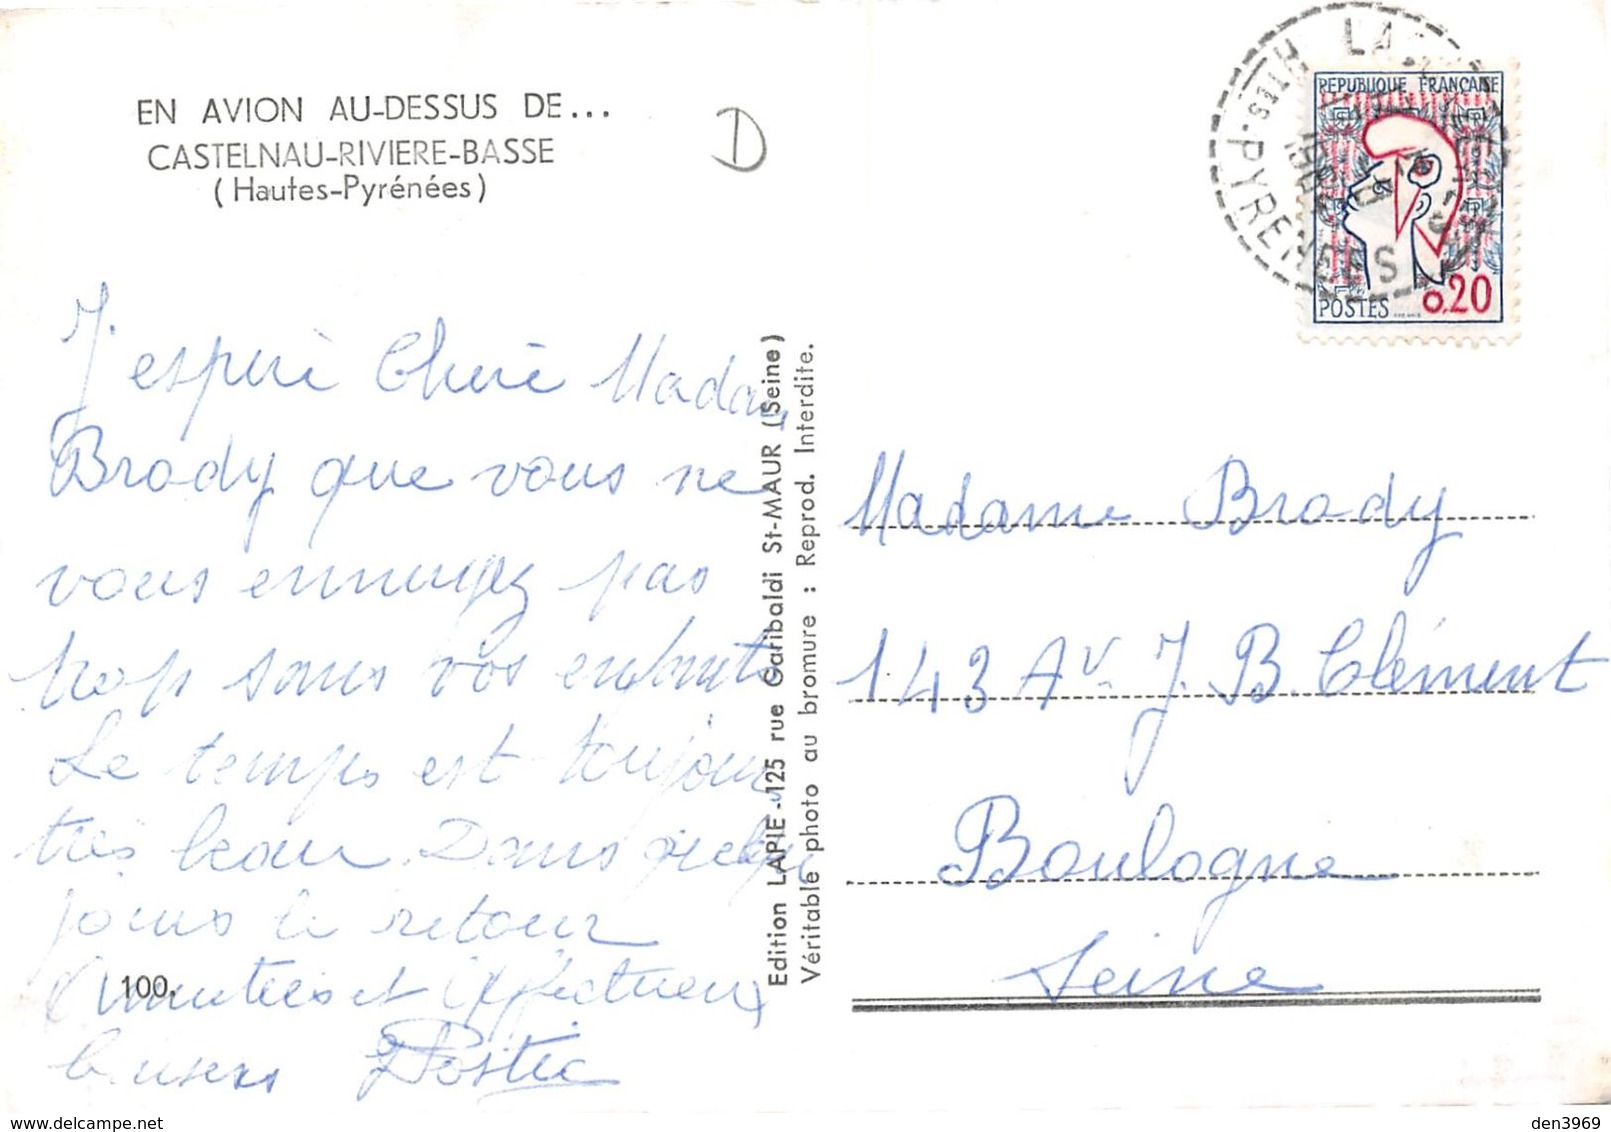 EN AVION AU-DESSUS DE...
CASTELNAU-RIVIERE-BASSE
(Hautes-Pyrénées)
D
J'espère Chère Madame
Brody que vous ne
vous ennuyez pas
trop sans vos enfants
Le temps est toujours
très beau. Dans quelques
jours le retour
Amitiés et affectueux
baisers Postic
100.
Edition LAPIE - 125 rue Garibaldi St-MAUR (Seine)
Véritable photo au bromure : Reprod. Interdite.
HTES-PYRENEES
REPUBLIQUE FRANÇAISE
POSTES 0,20
Madame Brody
143 Av. J. B. Clément
Boulogne
Seine
den3969